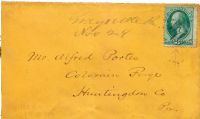 Maysville
Nov 28
Mr. Alfred Porter
Colerain Forge
Huntingdon Co
Pa.